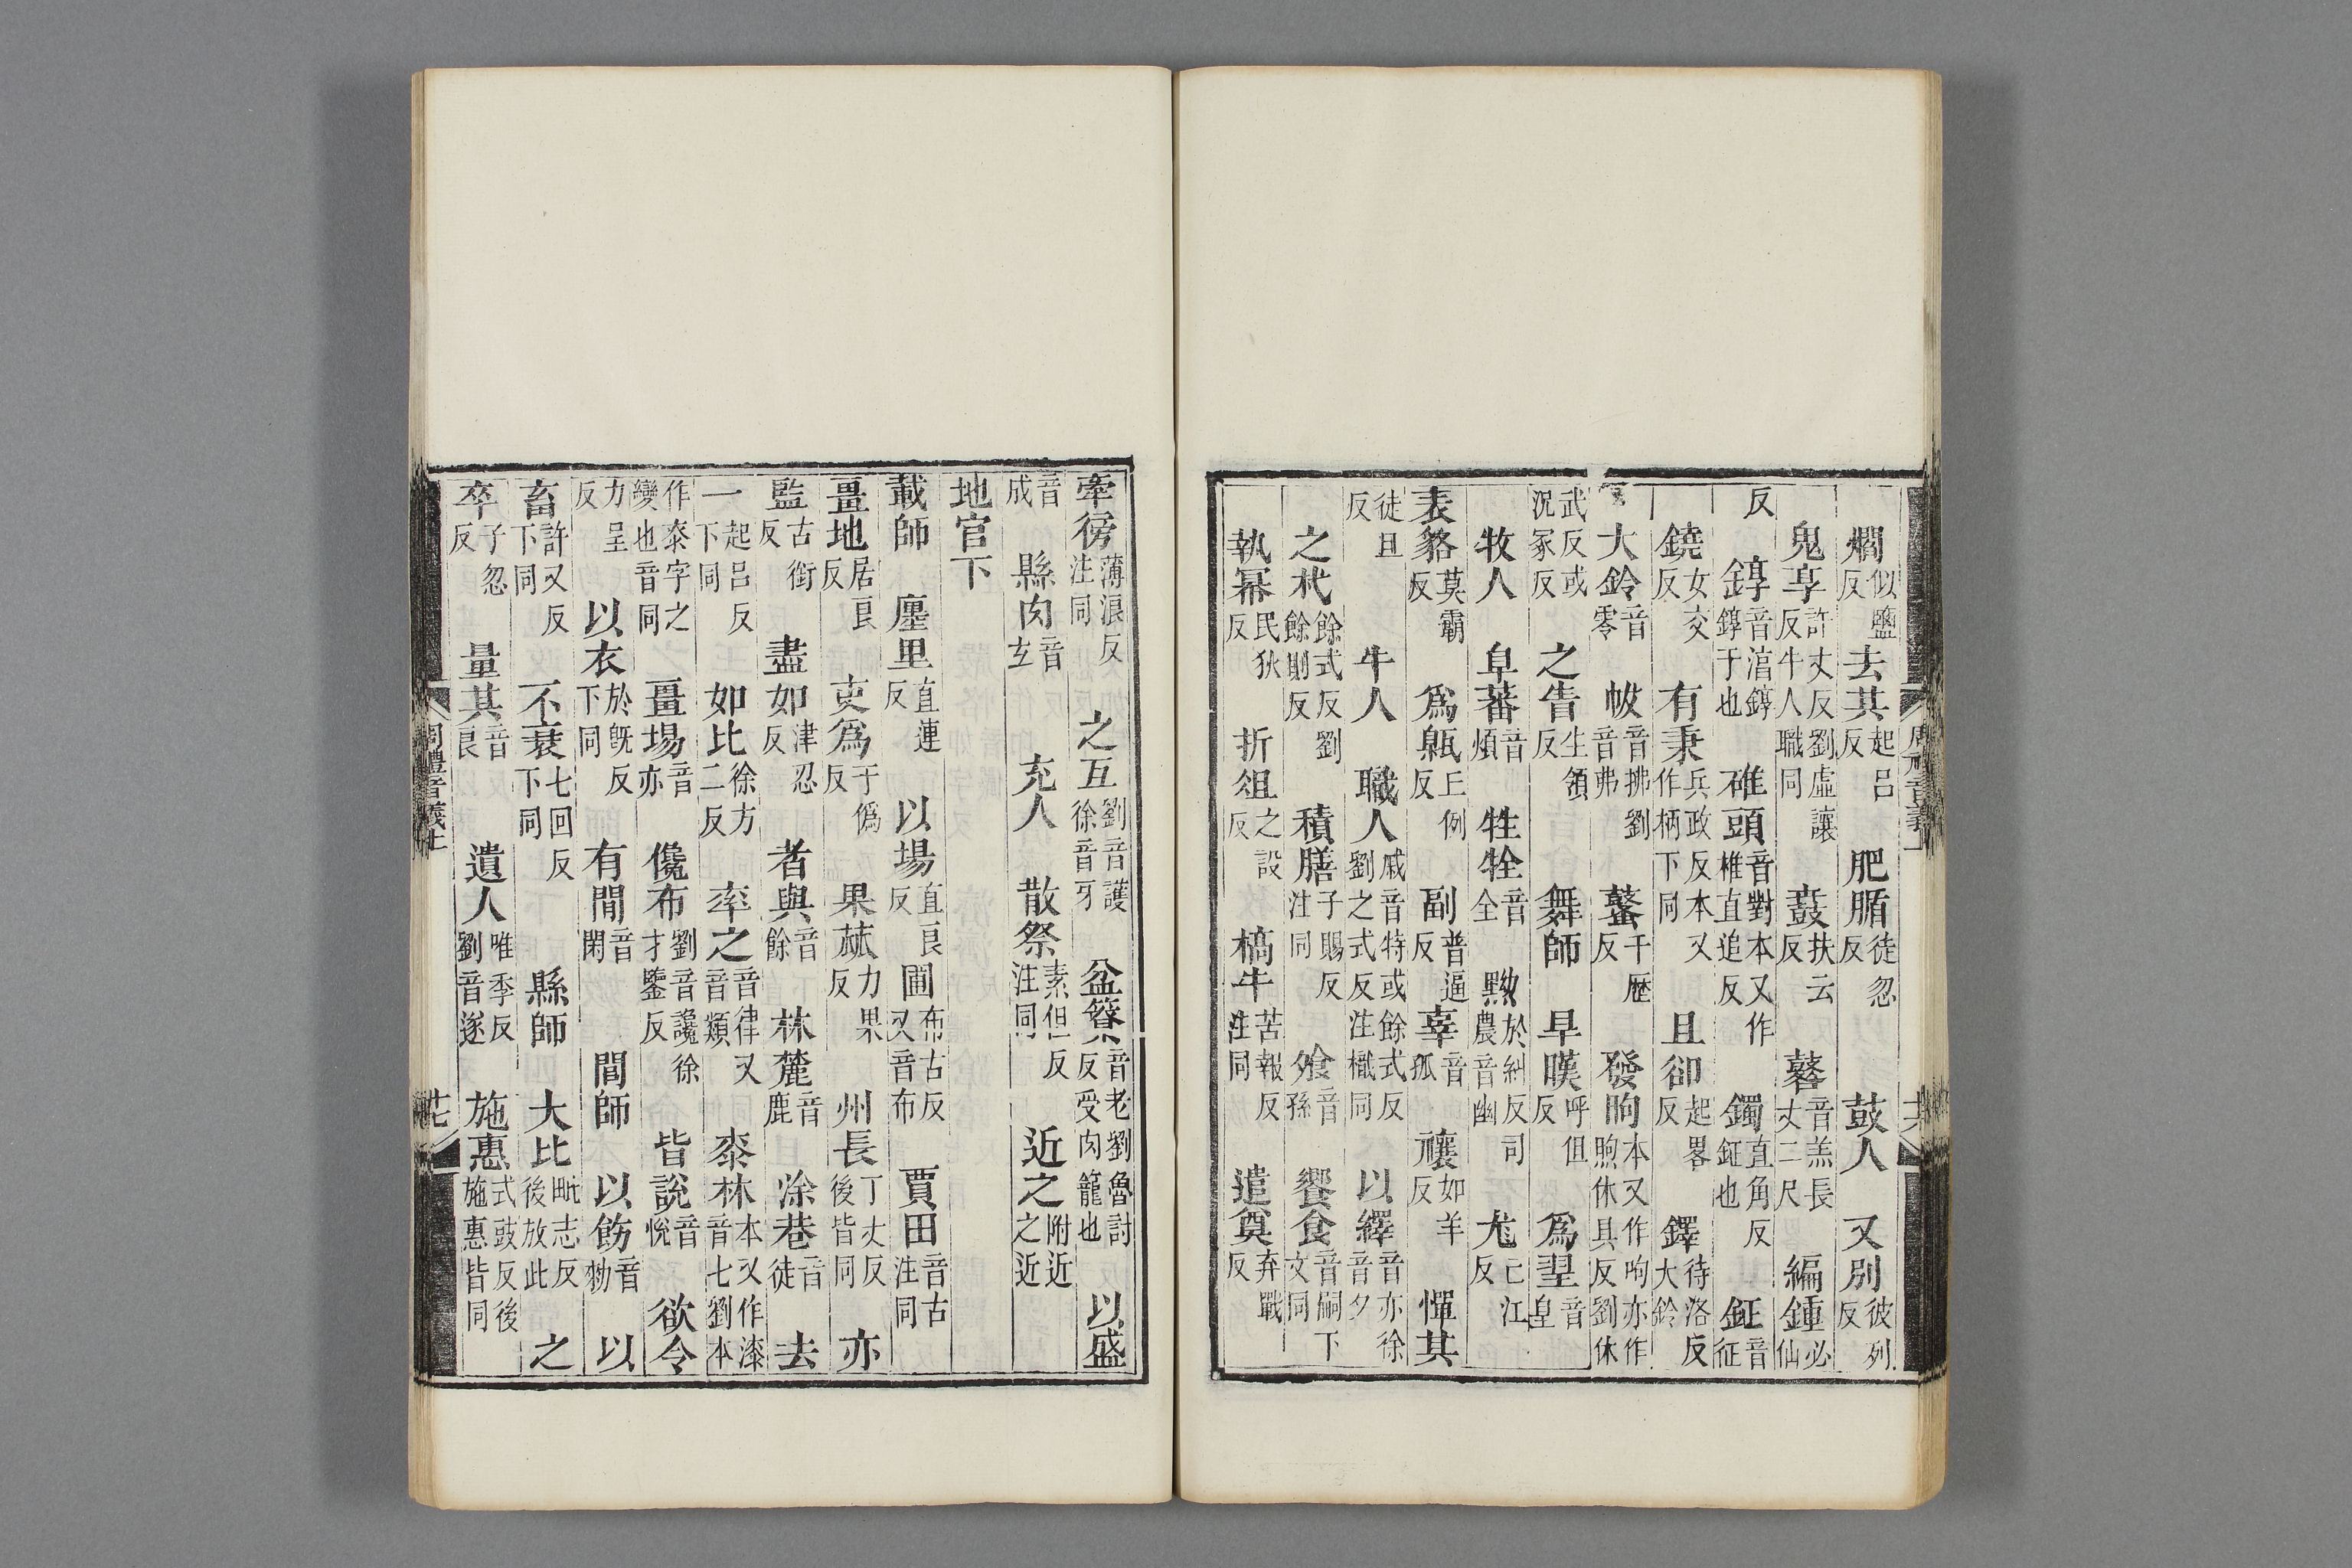 燗似鹽反 去其起呂反 肥腯徒忽反 鼓人 又別彼列反
鬼享許丈反劉虛讓反牛人職同 鼖扶云反 鼛音羔長丈二尺 編鍾必仙
反 錞音淳錞錞于也 碓頭音對本又作椎直追反 鐲直角反鉦也 鉦音征
鐃女交反 有秉兵政反本又作柄下同 且卻起畧反 鐸待洛反大鈴
大鈴音零 帗音拂劉音弗 鼜千歷反 發昫本又作呴亦作煦休具反劉休
武反或況冢反 之眚生領反 舞師 旱嘆呼但反 爲䍿音皇
牧人 阜蕃音煩 牲牷音全 黝於糾反司農音幽 尨亡江反
表貉莫霸反 爲甈丘例反 副普逼反 辜音孤 禳如羊反 憚其
徒旦反 牛人 職人戚音特或餘式反劉之式反注樴同 以繹音亦徐音夕
之杙餘式反劉餘則反 積膳子賜反注同 飧音孫 饗食音嗣下文同
執冪民狄反 折俎之設反 槁牛苦報反注同 遣奠弃戰反
牽徬薄浪反注同 之互劉音護徐音牙 盆簝音老劉魯討反受肉籠也 以盛
音成 縣肉音玄 充人 散祭素但反注同 近之附近之近
地官下
載師 廛里直連反 以場直良反 圃布古反又音布 賈田音古注同
畺地居良反 吏爲于僞反 果蓏力果反 州長丁丈反後皆同 亦
監古銜反 盡如津忍反 者與音餘 林麓音鹿 涂巷音徒 去
一起呂反下同 如比徐方二反 率之音律又音類 桼林本又作漆音七劉本
作桼字之變也音同 畺埸音亦 儳布劉音讒徐才鑒反 皆說音悅 欲令
力呈反 以衣於旣反下同 有閒音閑 閭師 以飭音勑 以
畜許又反下同 不衰七回反下同 縣師 大比毗志反後放此 之
卒子忽反 量其音良 遺人唯季反劉音遂 施惠式豉反後施惠皆同
周禮音義上